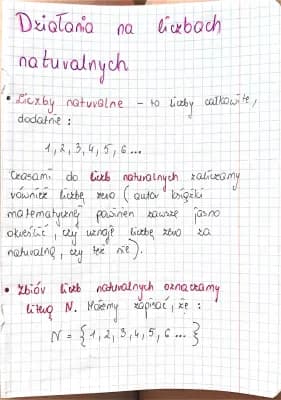 Działania na liczbach
naturalnych
• Liczby naturalne – to liczby całkowite,
dodatnie:
1, 2, 3, 4, 5, 6...
Czasami do liczb naturalnych zaliczamy
również liczbę zero (autor książki
matematycznej powinien zawsze jasno
określić, czy uznaje liczbę zero za
naturalną, czy też nie).
• Zbiór liczb naturalnych oznaczamy
literą N. Możemy zapisać, że:
N = {1, 2, 3, 4, 5, 6...}